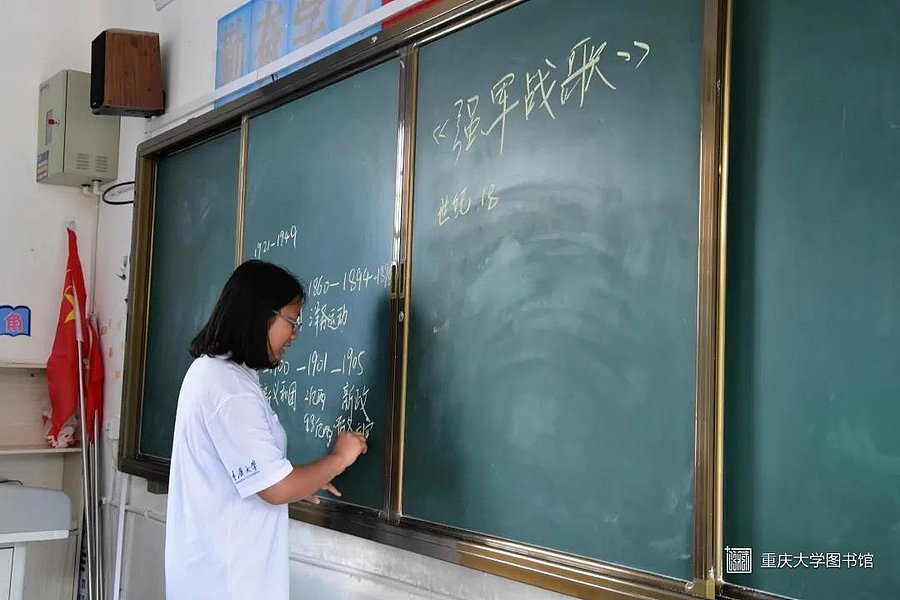 奋学
角
《强军战歌》
世纪.18
1921-1949
1860-1894-18
洋务运动
00-1901-1905
义和团 亿两 新政
重庆大学
重庆大学图书馆